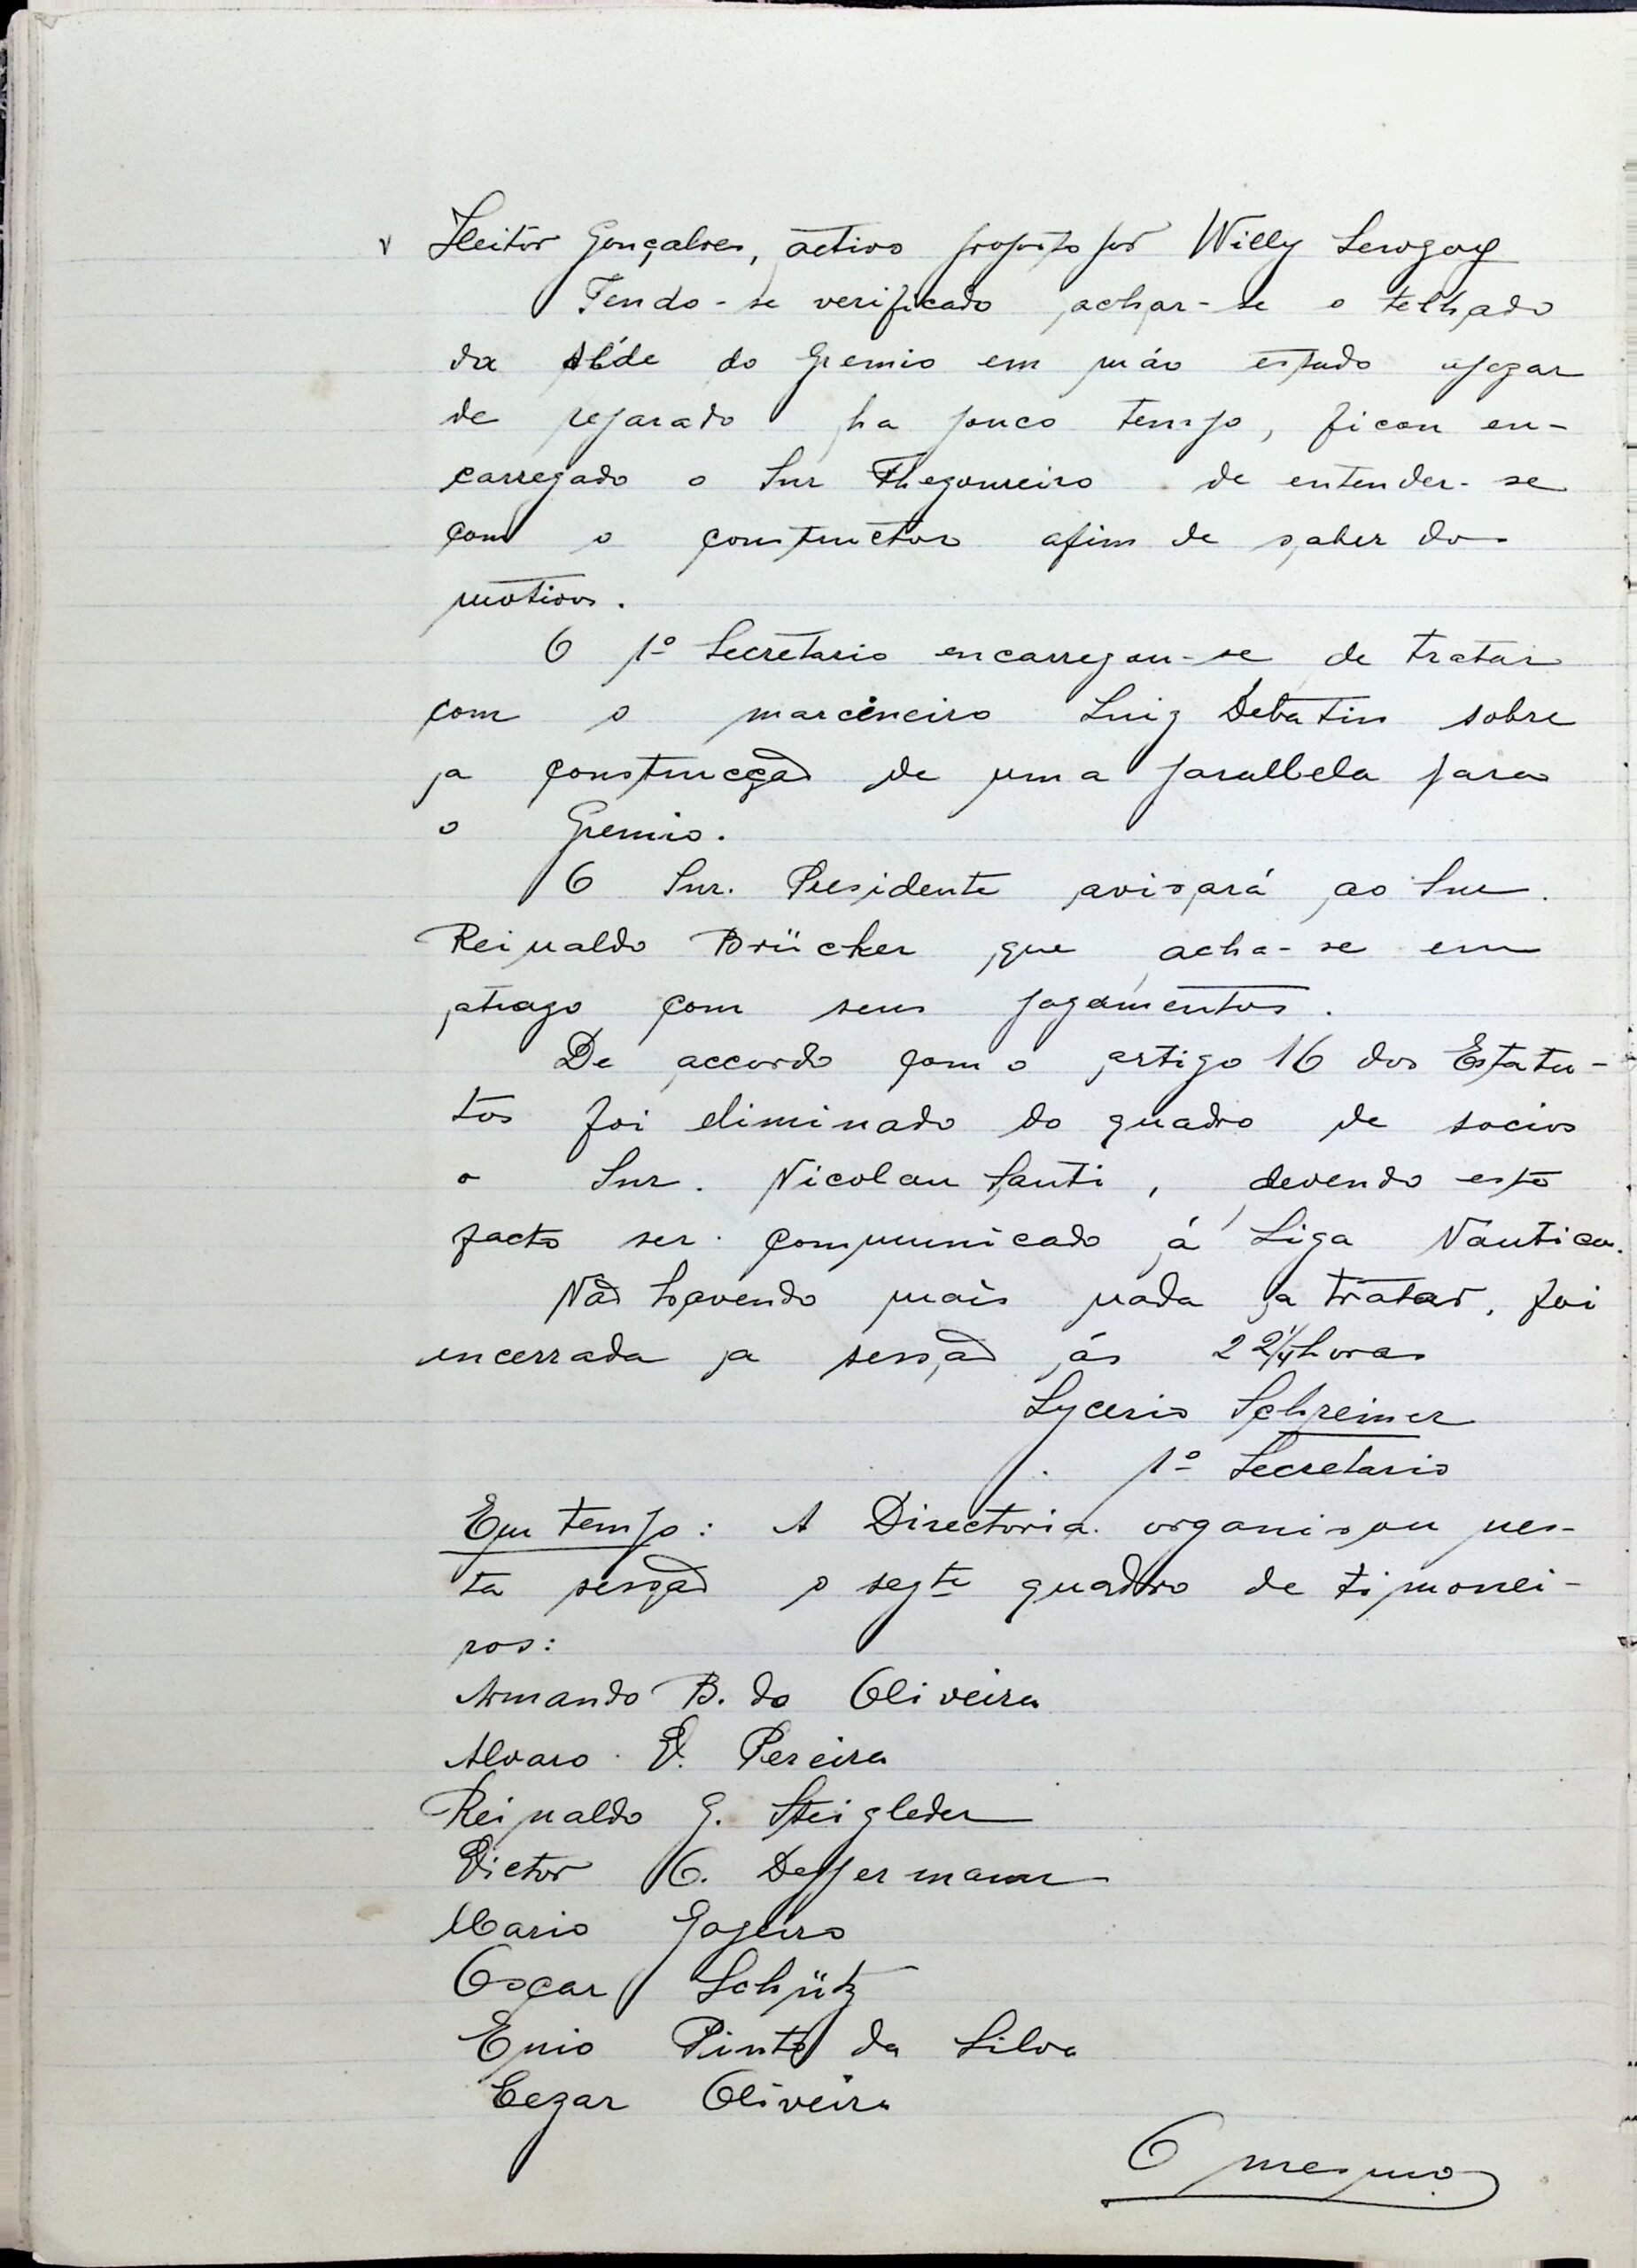 v Heitor Gonçalves, activo proposto por Willy
Tendo-se verificado achar-se o telhado
da séde do Gremio em máo estado apezar
de reparado ha pouco tempo, ficou en-
carregado o Snr Thezoureiro de entender-se
com o constructor afim de saber dos
motivos.
O 1º Secretario encarregou-se de tratar
com o marcineiro Luiz Debatin sobre
a construcção de uma parallela para
o Gremio.
O Snr. Presidente avisará ao Snr.
Reinaldo Brücker que acha-se em
atrazo com seus pagamentos.
De accordo com o artigo 16 dos Estatu-
tos foi eliminado do quadro de socios
o Snr. Nicolau Santi, devendo este
facto ser communicado á Liga Nautica.
Não havendo mais nada a tratar, foi
encerrada a sessão ás 22 1/4 horas
Lycerio Schreiner
1º Secretario
Em tempo: A Directoria organisou nes-
ta sessão o segte quadro de timonei-
ros:
Armando B. de Oliveira
Alvaro E. Pereira
Reinaldo G. Steigleder
Victor O. Deppermann
Mario
Oscar Schütz
Enio Pinto da Silva
Cezar Oliveira
O mesmo